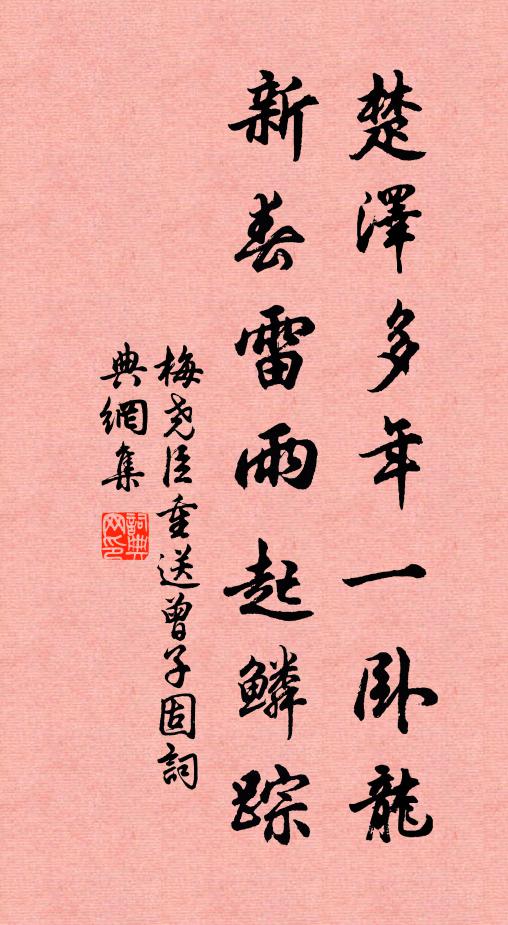 楚澤多年一卧龍
新春雷雨起鱗踪
梅尧臣重送曾子固詞
典網集
詞典网印